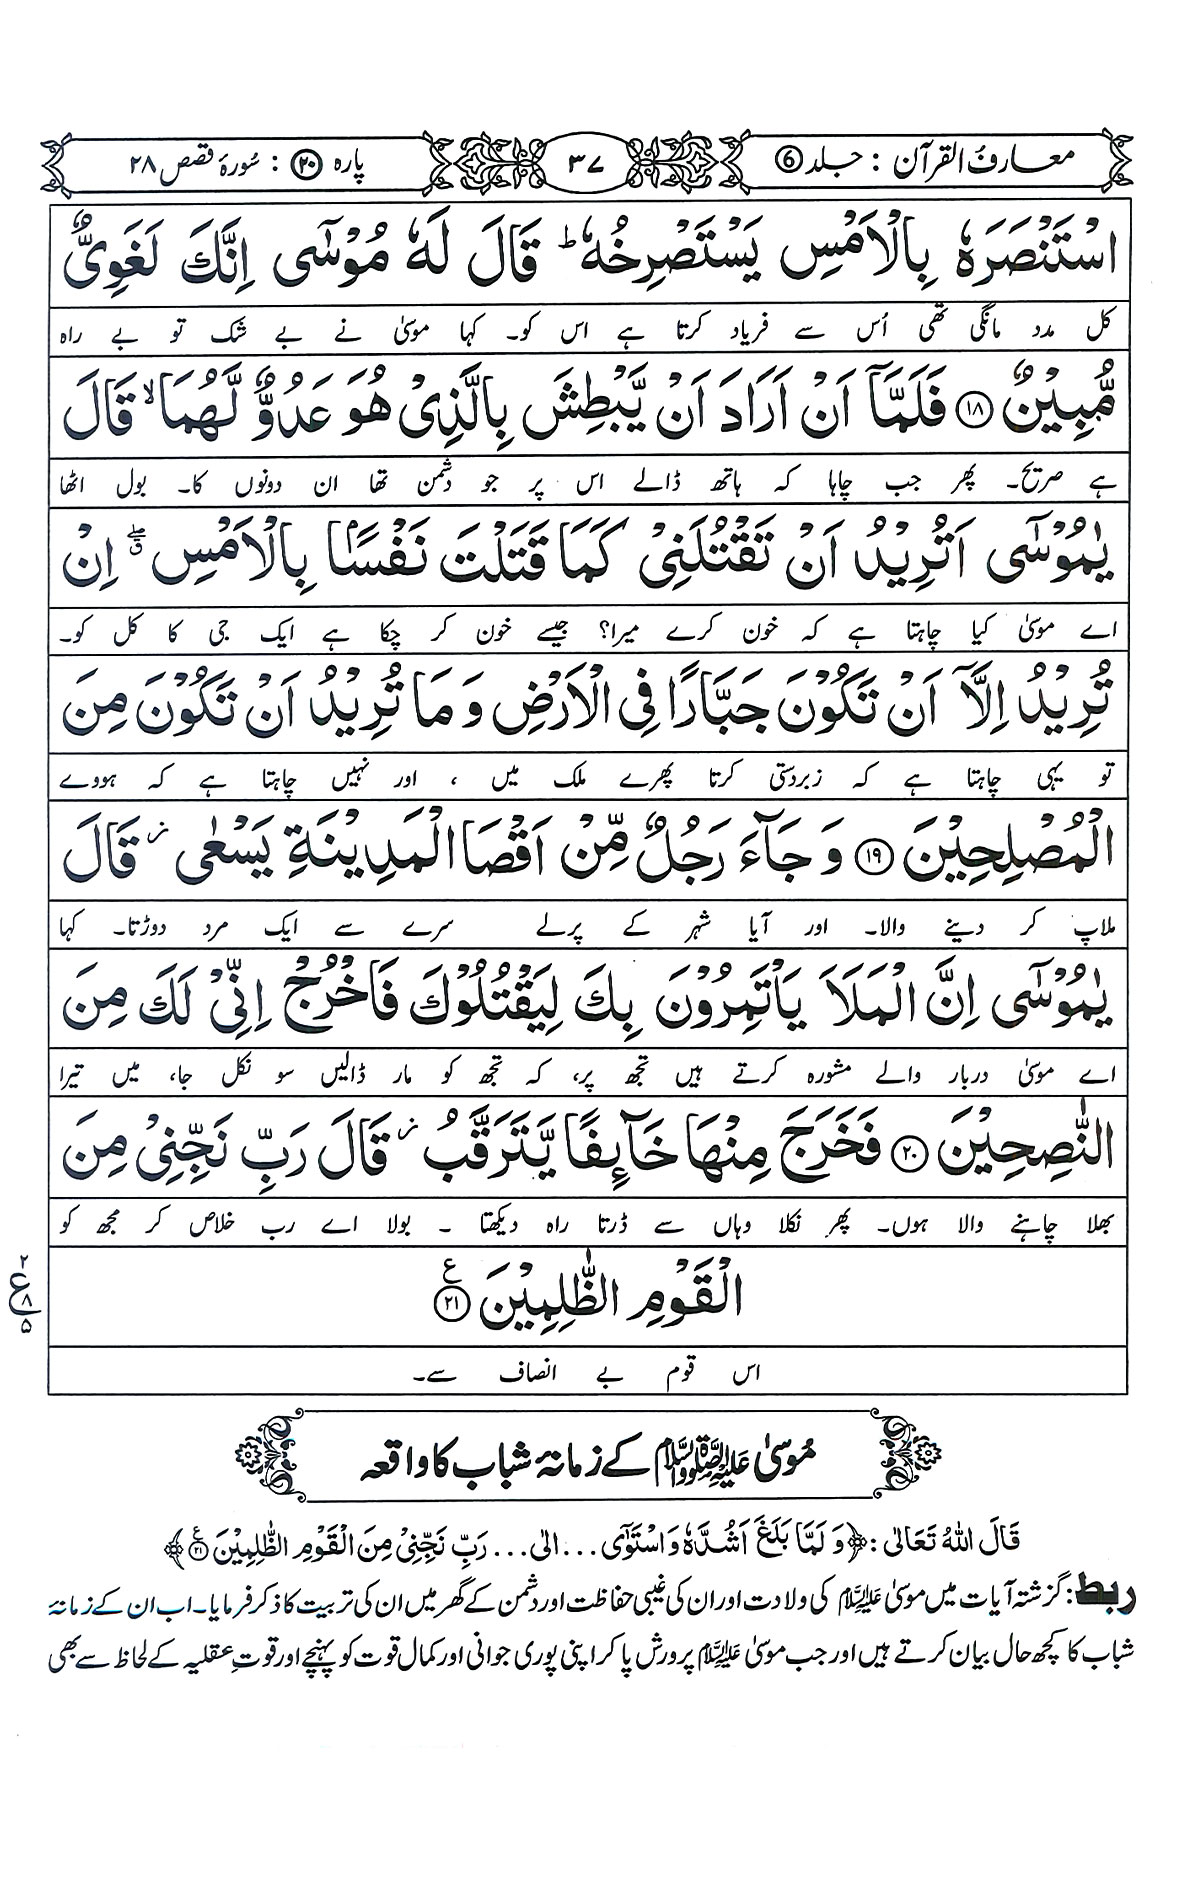 معارف القرآن : جلد ⑥
۳۷
پارہ ⑳ : سُورۂ قصص ۲۸
اسْتَنْصَرَهٗ بِالْاَمْسِ يَسْتَصْرِخُهٗ ؕ قَالَ لَهٗ مُوْسٰٓى اِنَّكَ لَغَوِىٌّ
کل مدد مانگی تھی اُس سے فریاد کرتا ہے اس کو۔ کہا موسیٰ نے بے شک تو بے راہ
مُّبِيْنٌ ﴿۱۸﴾ فَلَمَّاۤ اَنْ اَرَادَ اَنْ يَّبْطِشَ بِالَّذِىْ هُوَ عَدُوٌّ لَّهُمَا ۙ قَالَ
ہے صریح۔ پھر جب چاہا کہ ہاتھ ڈالے اس پر جو دشمن تھا ان دونوں کا۔ بول اٹھا
يٰمُوْسٰٓى اَتُرِيْدُ اَنْ تَقْتُلَنِىْ كَمَا قَتَلْتَ نَفْسًاۢ بِالْاَمْسِ ۖق اِنْ
اے موسیٰ کیا چاہتا ہے کہ خون کرے میرا؟ جیسے خون کر چکا ہے ایک جی کا کل کو۔
تُرِيْدُ اِلَّاۤ اَنْ تَكُوْنَ جَبَّارًا فِى الْاَرْضِ وَ مَا تُرِيْدُ اَنْ تَكُوْنَ مِنَ
تو یہی چاہتا ہے کہ زبردستی کرتا پھرے ملک میں ، اور نہیں چاہتا ہے کہ ہووے
الْمُصْلِحِيْنَ ﴿۱۹﴾ وَ جَآءَ رَجُلٌ مِّنْ اَقْصَا الْمَدِيْنَةِ يَسْعٰى ز قَالَ
ملاپ کر دینے والا۔ اور آیا شہر کے پرلے سرے سے ایک مرد دوڑتا۔ کہا
يٰمُوْسٰٓى اِنَّ الْمَلَاَ يَاْتَمِرُوْنَ بِكَ لِيَقْتُلُوْكَ فَاخْرُجْ اِنِّىْ لَكَ مِنَ
اے موسیٰ دربار والے مشورہ کرتے ہیں تجھ پر، کہ تجھ کو مار ڈالیں سو نکل جا، میں تیرا
النّٰصِحِيْنَ ﴿۲۰﴾ فَخَرَجَ مِنْهَا خَآئِفًا يَّتَرَقَّبُ ز قَالَ رَبِّ نَجِّنِىْ مِنَ
بھلا چاہنے والا ہوں۔ پھر نکلا وہاں سے ڈرتا راہ دیکھتا ۔ بولا اے رب خلاص کر مجھ کو
الْقَوْمِ الظّٰلِمِيْنَ ﴿۲۱﴾ ع
۲
ع
۸
۵
اس قوم بے انصاف سے۔
مُوسیٰ عَلَیْہِ الصَّلٰوۃُ وَالسَّلَام کے زمانۂ شباب کا واقعہ
قَالَ اللہُ تَعَالٰی : ﴿وَ لَمَّا بَلَغَ اَشُدَّهٗ وَاسْتَوٰٓى ... الیٰ ... رَبِّ نَجِّنِىْ مِنَ الْقَوْمِ الظّٰلِمِيْنَ ۲۱ ع﴾
ربط: گزشتہ آیات میں موسیٰ عَلَیْہِ السَّلَام کی ولادت اور ان کی غیبی حفاظت اور دشمن کے گھر میں ان کی تربیت کا ذکر فرمایا۔ اب ان کے زمانۂ
شباب کا کچھ حال بیان کرتے ہیں اور جب موسیٰ عَلَیْہِ السَّلَام پرورش پا کر اپنی پوری جوانی اور کمال قوت کو پہنچے اور قوتِ عقلیہ کے لحاظ سے بھی